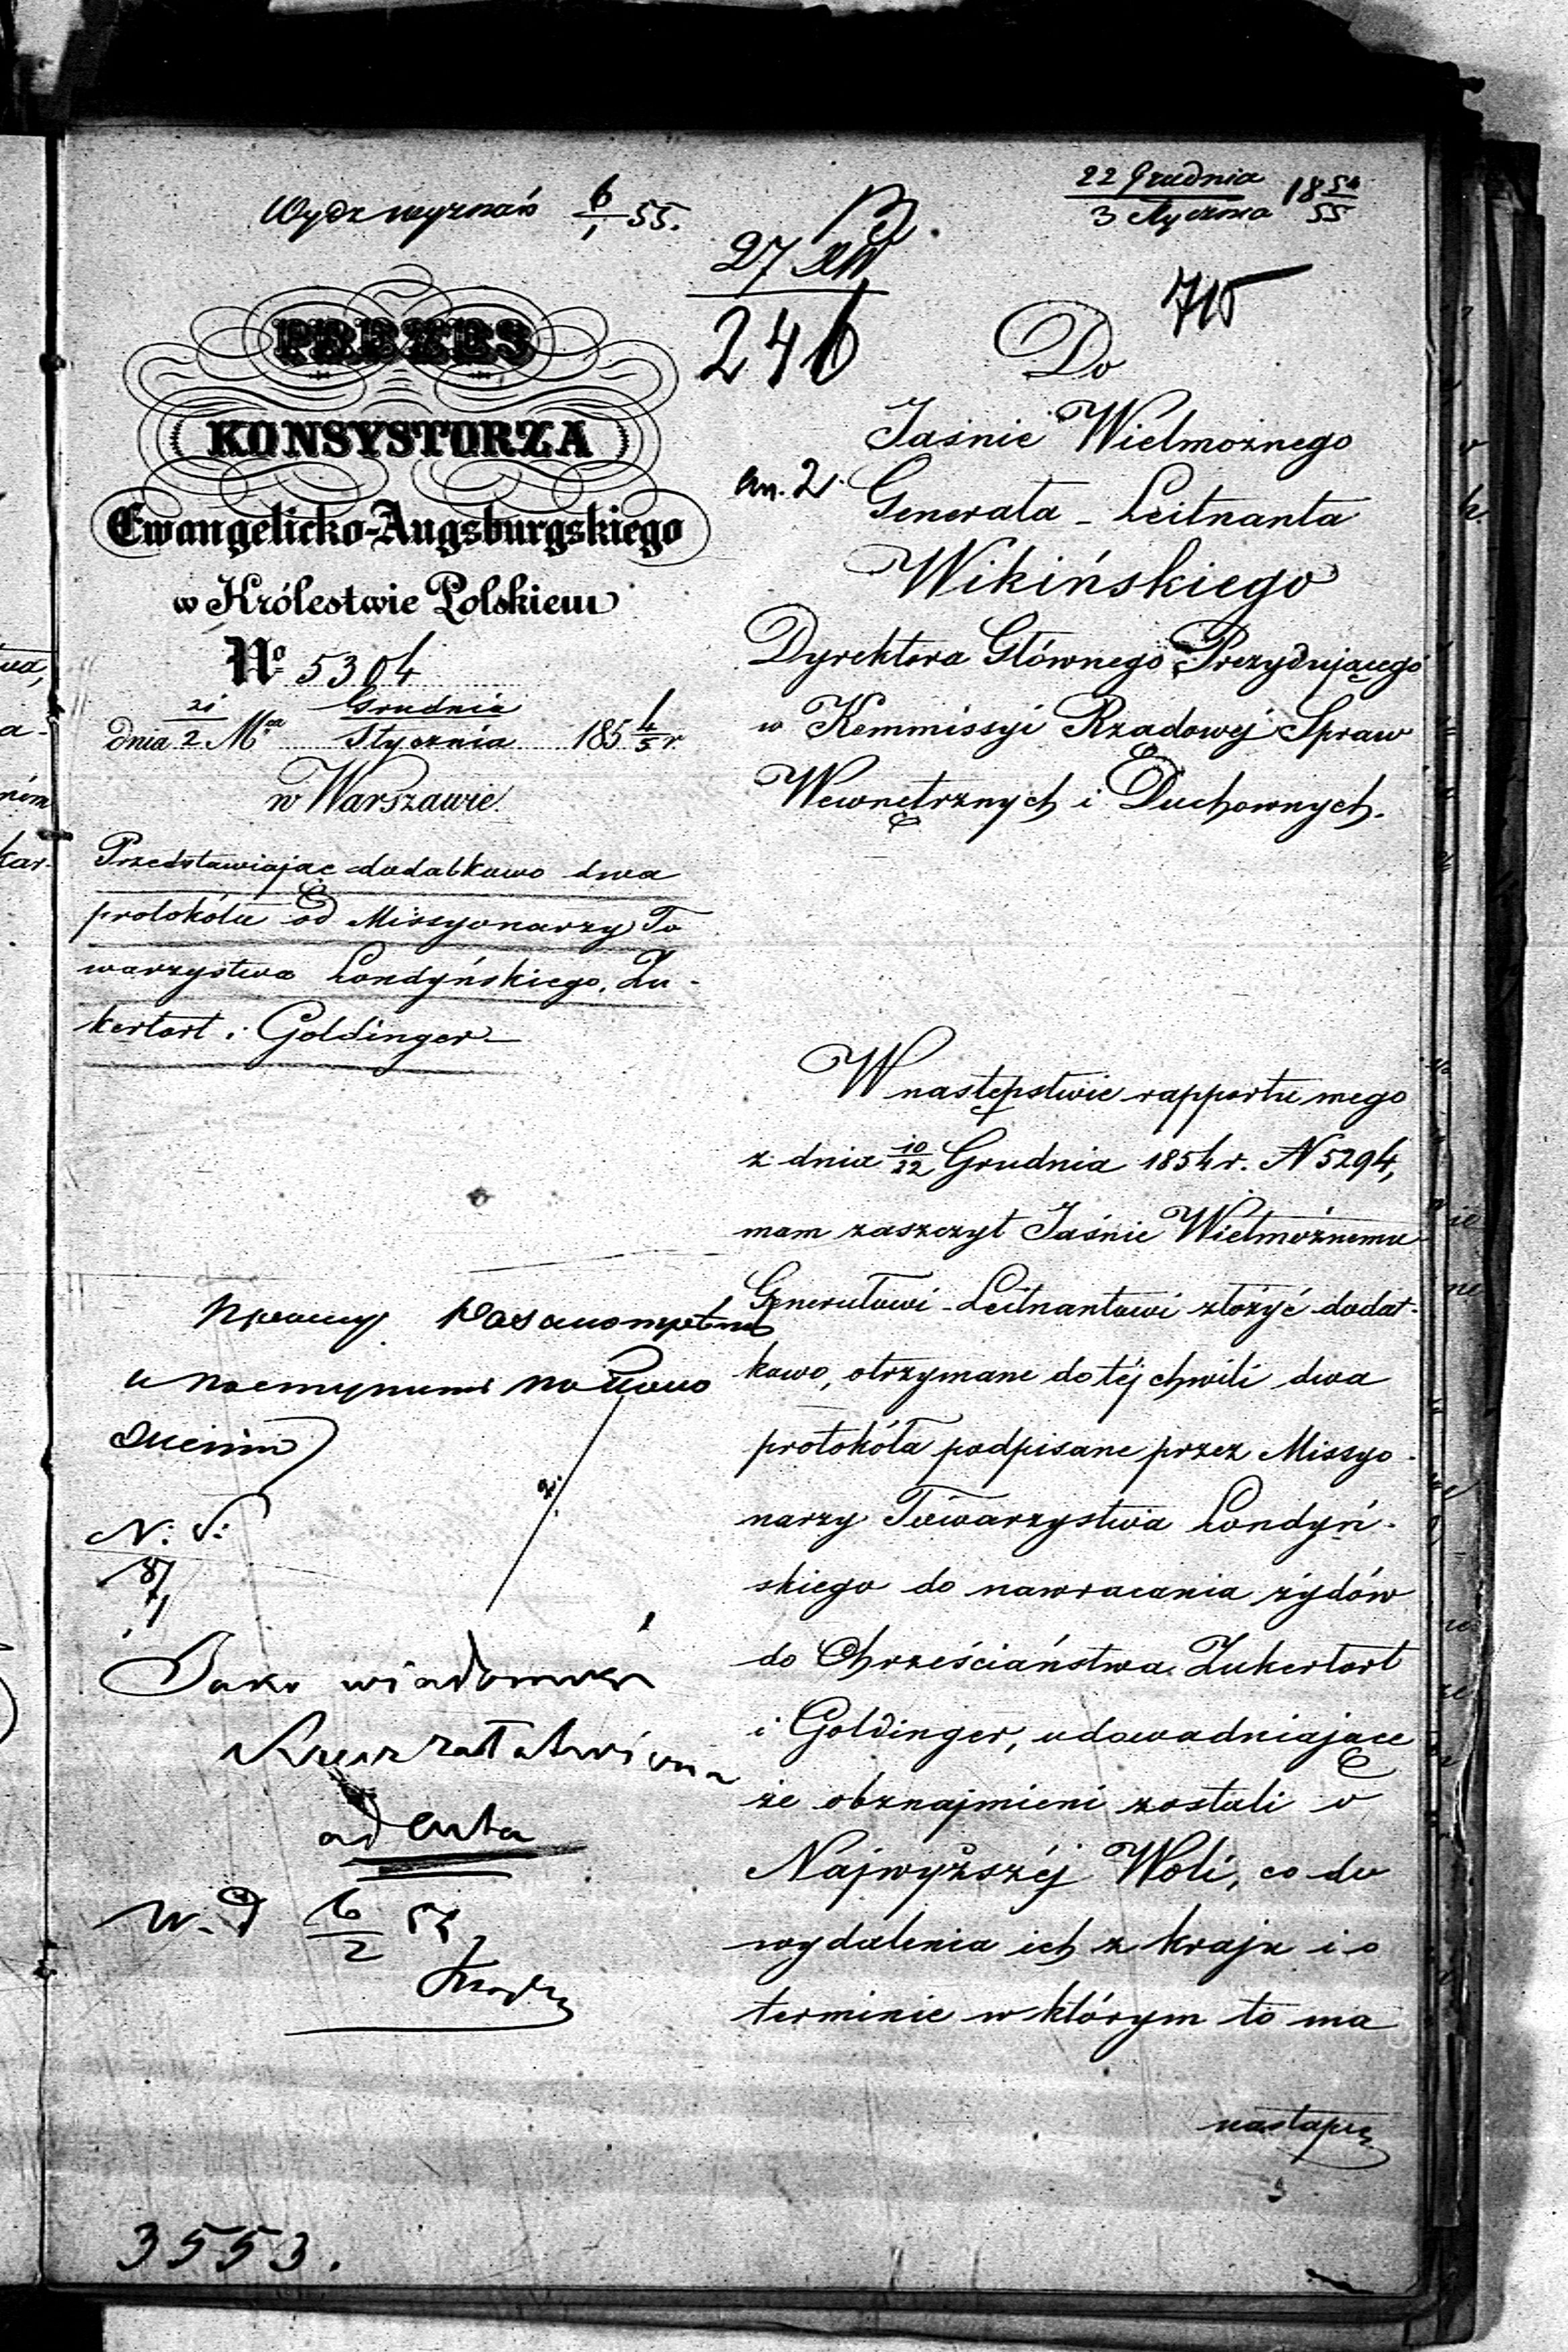 Wydz wyznań 6/1 55.
22 Grudnia 18 54
3 Stycznia 55
27
246
715
PREZES
KONSYSTORZA
Ewangelicko-Augsburgskiego
w Królestwie Polskiem
No 5304
dnia 21/2 Mca Grudnia/Stycznia 185 4/5 r.
w Warszawie.
Przedstawiając dodatkowo dwa
protokóła od Missyonarzy To
warzystwa Londyńskiego, Zu-
kertort i Goldinger
Do
Jaśnie Wielmożnego
an. 2.
Generała - Leitnanta
Wikińskiego
Dyrektora Głównego Prezydującego
w Kommissyi Rządowej Spraw
Wewnętrznych i Duchownych.
W następstwie rapportu mego
z dnia 10/22 Grudnia 1854 r. N 5294,
mam zaszczyt Jaśnie Wielmożnemu
Generałowi-Leitnantowi złożyć dodat-
kowo, otrzymane do téj chwili dwa
protokóła podpisane przez Missyo-
narzy Towarzystwa Londyń-
skiego do nawracania żydów
do Chrześciaństwa Zukertort
i Goldinger, udowadniające
że obznajmieni zostali o
Najwyższéj Woli, co do
wydalenia ich z kraju i o
terminie w którym to ma
nastąpić
N: S:
8/1
Jako wiadomość
ad acta
W. D 6/2 55
3553.